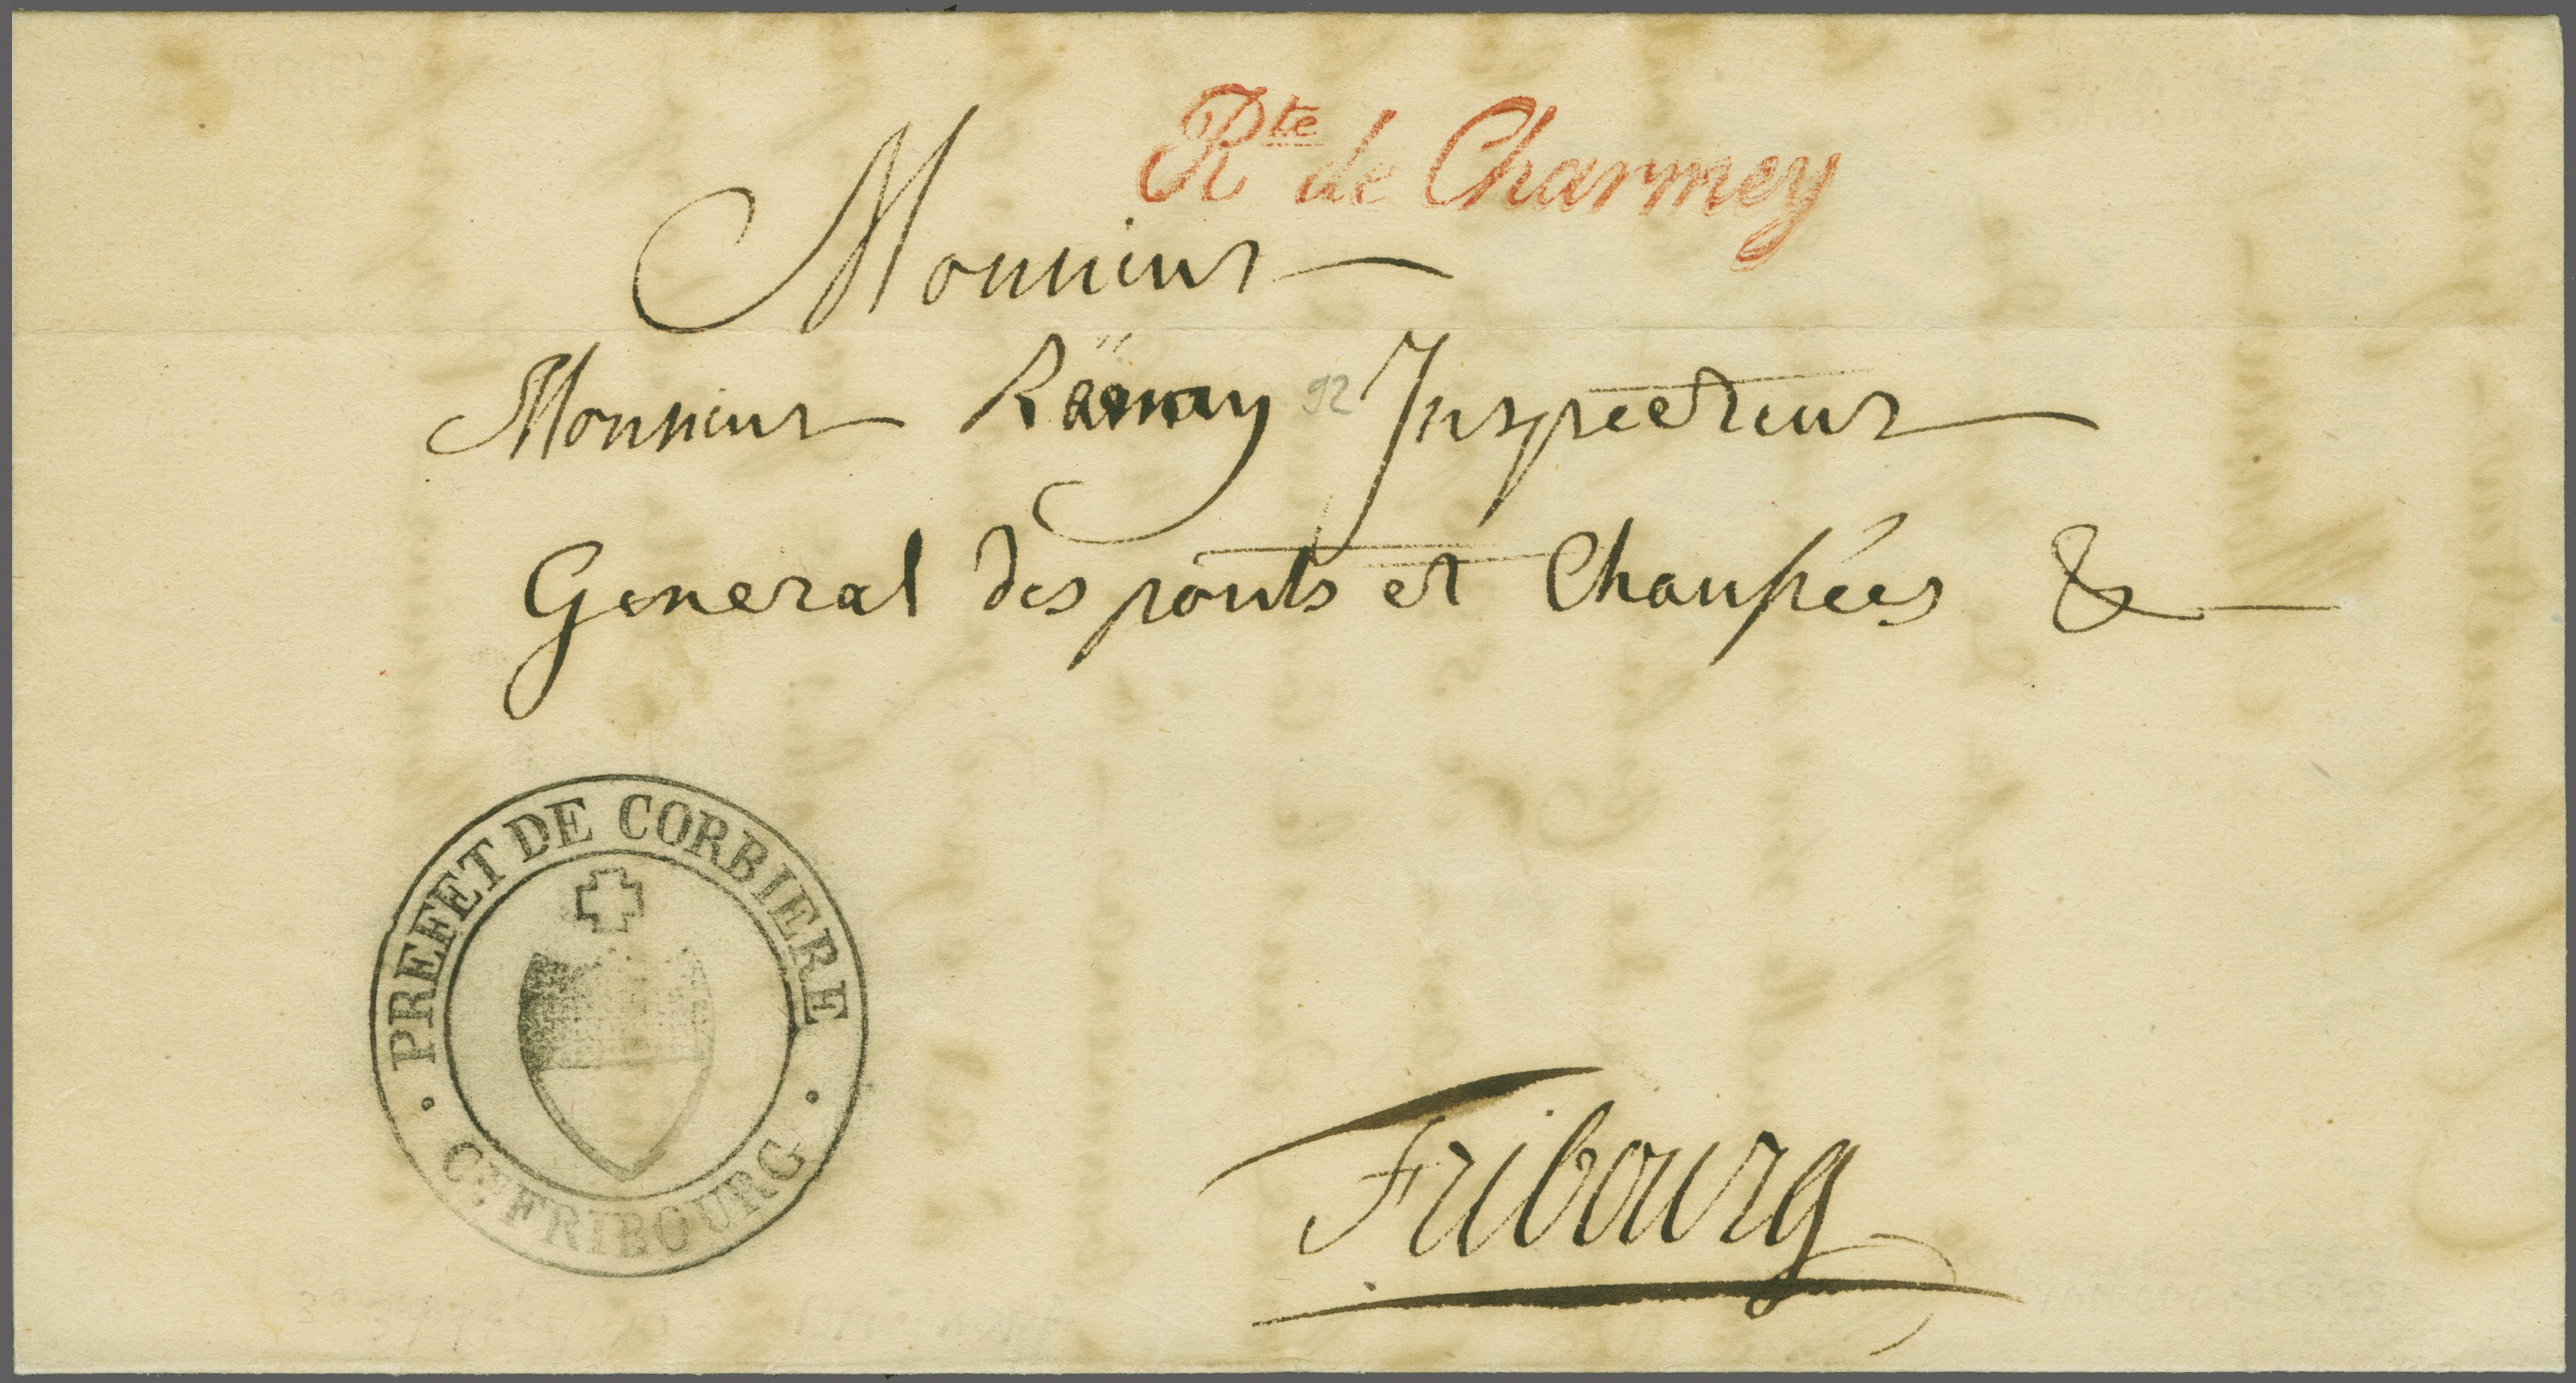 Rte de Charmey
Monsieur
Monsieur Rämy 92 Inspecteur
General des ponts et Chaussées &
PREFET DE CORBIERE
Ct. FRIBOURG
Fribourg